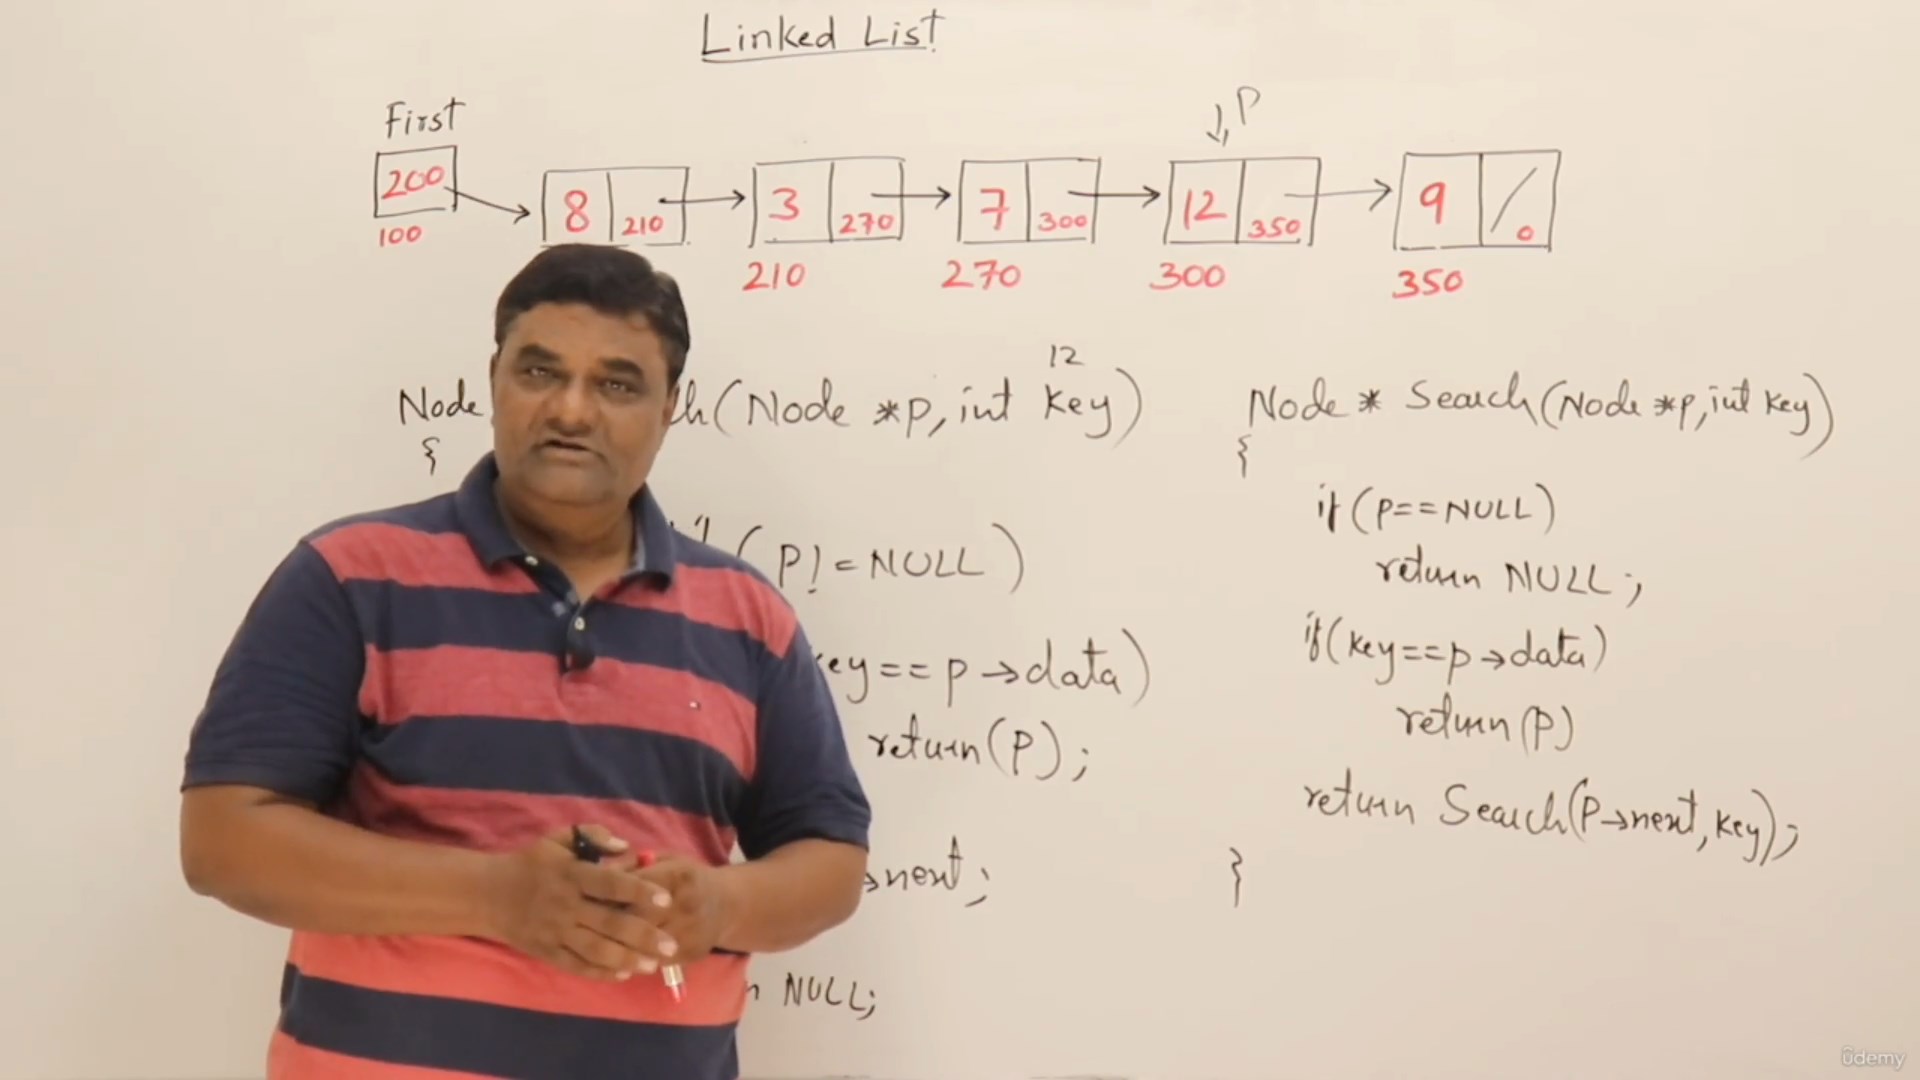 Linked List
First
P
200
8 210
3 270
7 300
12 350
9 / 0
100
210
270
300
350
12
Node (Node *p, int key)
{
( P! = NULL )
key == p → data)
return (P);
next;
NULL;
Node * Search(Node *p, int key)
{
if (P==NULL)
return NULL;
if (key==p→data)
return (P)
return Search(P→next, key);
}
ûdemy